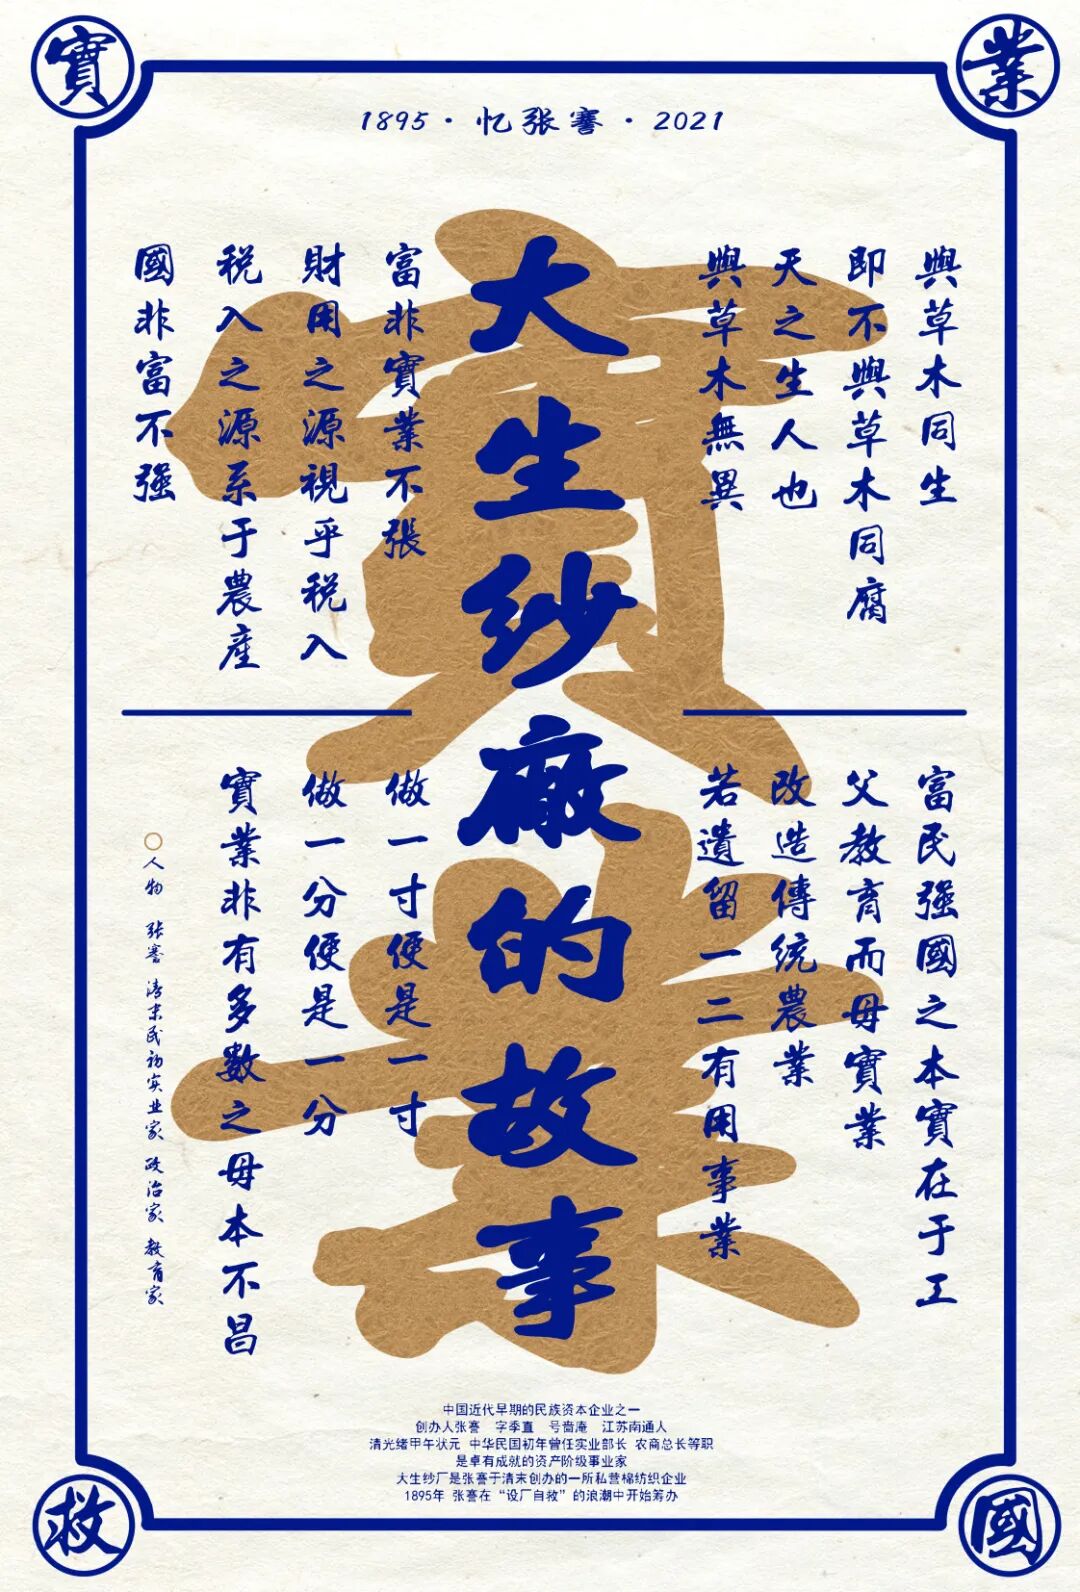 實
業
1895·忆张謇·2021
實業
大生纱廠的故事
與草木同生
即不與草木同腐
天之生人也
與草木無異
富非實業不張
財用之源視乎税入
税入之源系于農産
國非富不强
富民强國之本實在于工
父教育而母實業
改造傳統農業
若遺留一二有用事業
做一寸便是一寸
做一分便是一分
實業非有多数之母本不昌
○人物 张謇 清末民初实业家 政治家 教育家
中国近代早期的民族资本企业之一
创办人张謇 字季直 号啬庵 江苏南通人
清光绪甲午状元 中华民国初年曾任实业部长 农商总长等职
是卓有成就的资产阶级事业家
大生纱厂是张謇于清末创办的一所私营棉纺织企业
1895年 张謇在“设厂自救”的浪潮中开始筹办
救
國